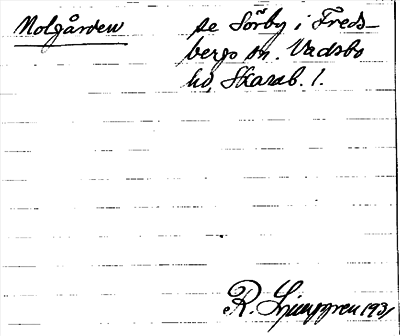 Nolgården se Sörby i Freds-
bergs sn. Vadsbo
hd, Skarab. l.
R. Ljunggren 1931